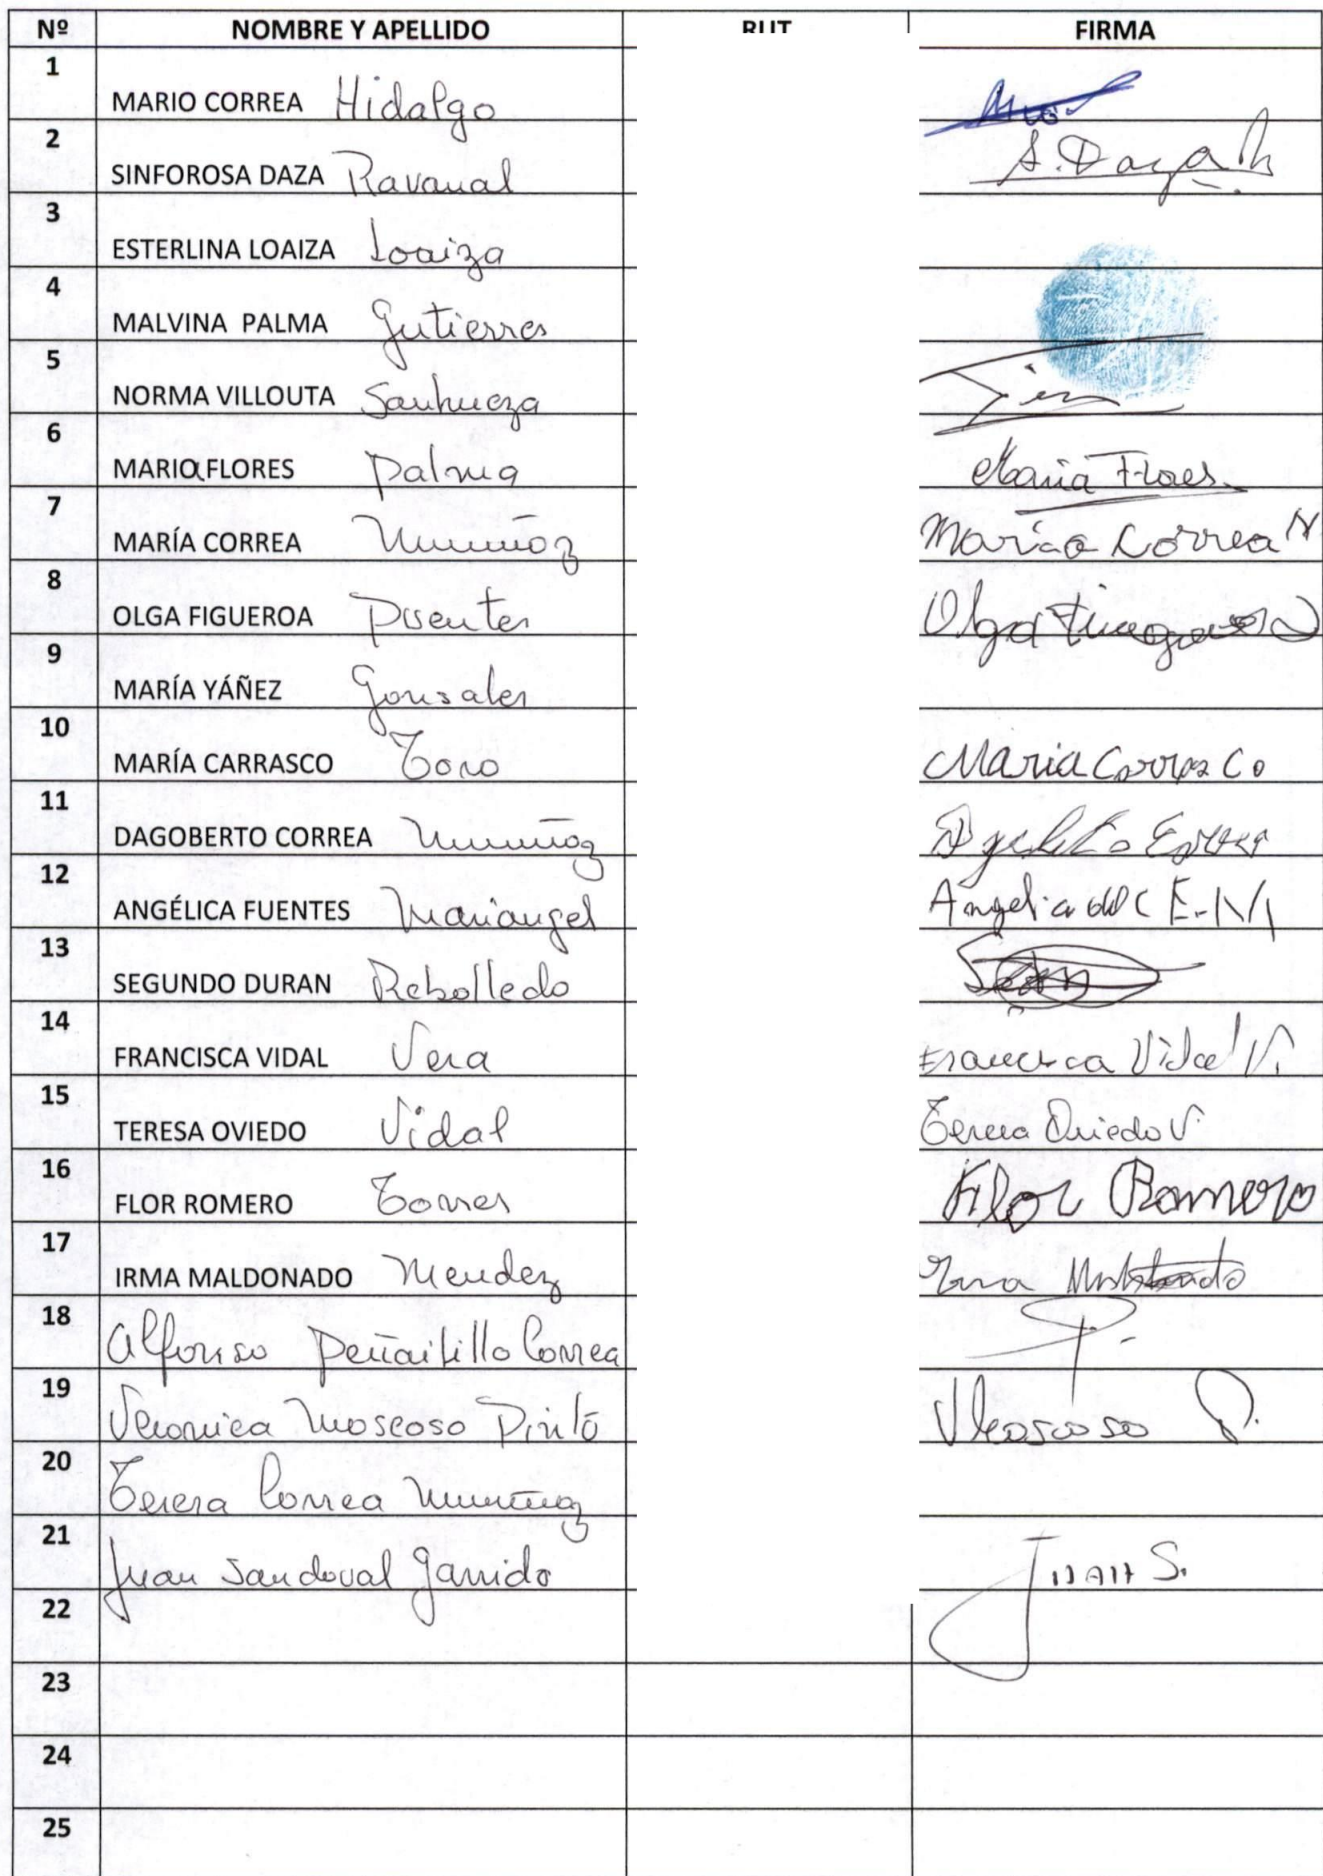 Nº NOMBRE Y APELLIDO RUT FIRMA
1 MARIO CORREA Hidalgo
2 SINFOROSA DAZA Ravanal S. Daza
3 ESTERLINA LOAIZA Loaiza
4 MALVINA PALMA Gutierres
5 NORMA VILLOUTA Sanhueza
6 MARIA FLORES Palma Maria Flores
7 MARÍA CORREA Munñoz Maria Correa M
8 OLGA FIGUEROA Puentes Olga Figueroa
9 MARÍA YÁÑEZ Gonsales
10 MARÍA CARRASCO Toro Maria Carrasco
11 DAGOBERTO CORREA Munñoz
12 ANGÉLICA FUENTES Mariangel Angelica del C F.M
13 SEGUNDO DURAN Rebolledo
14 FRANCISCA VIDAL Vera Francisca Vidal V.
15 TERESA OVIEDO Vidal Teresa Oviedo V.
16 FLOR ROMERO Torres Flor Romero
17 IRMA MALDONADO Mendez Irma Maldonado
18 Alfonso Peñailillo Correa
19 Veronica Moscoso Pinto VMoscoso P.
20 Teresa Correa Munñoz
21 Juan Sandoval Garrido Juan S.
22
23
24
25